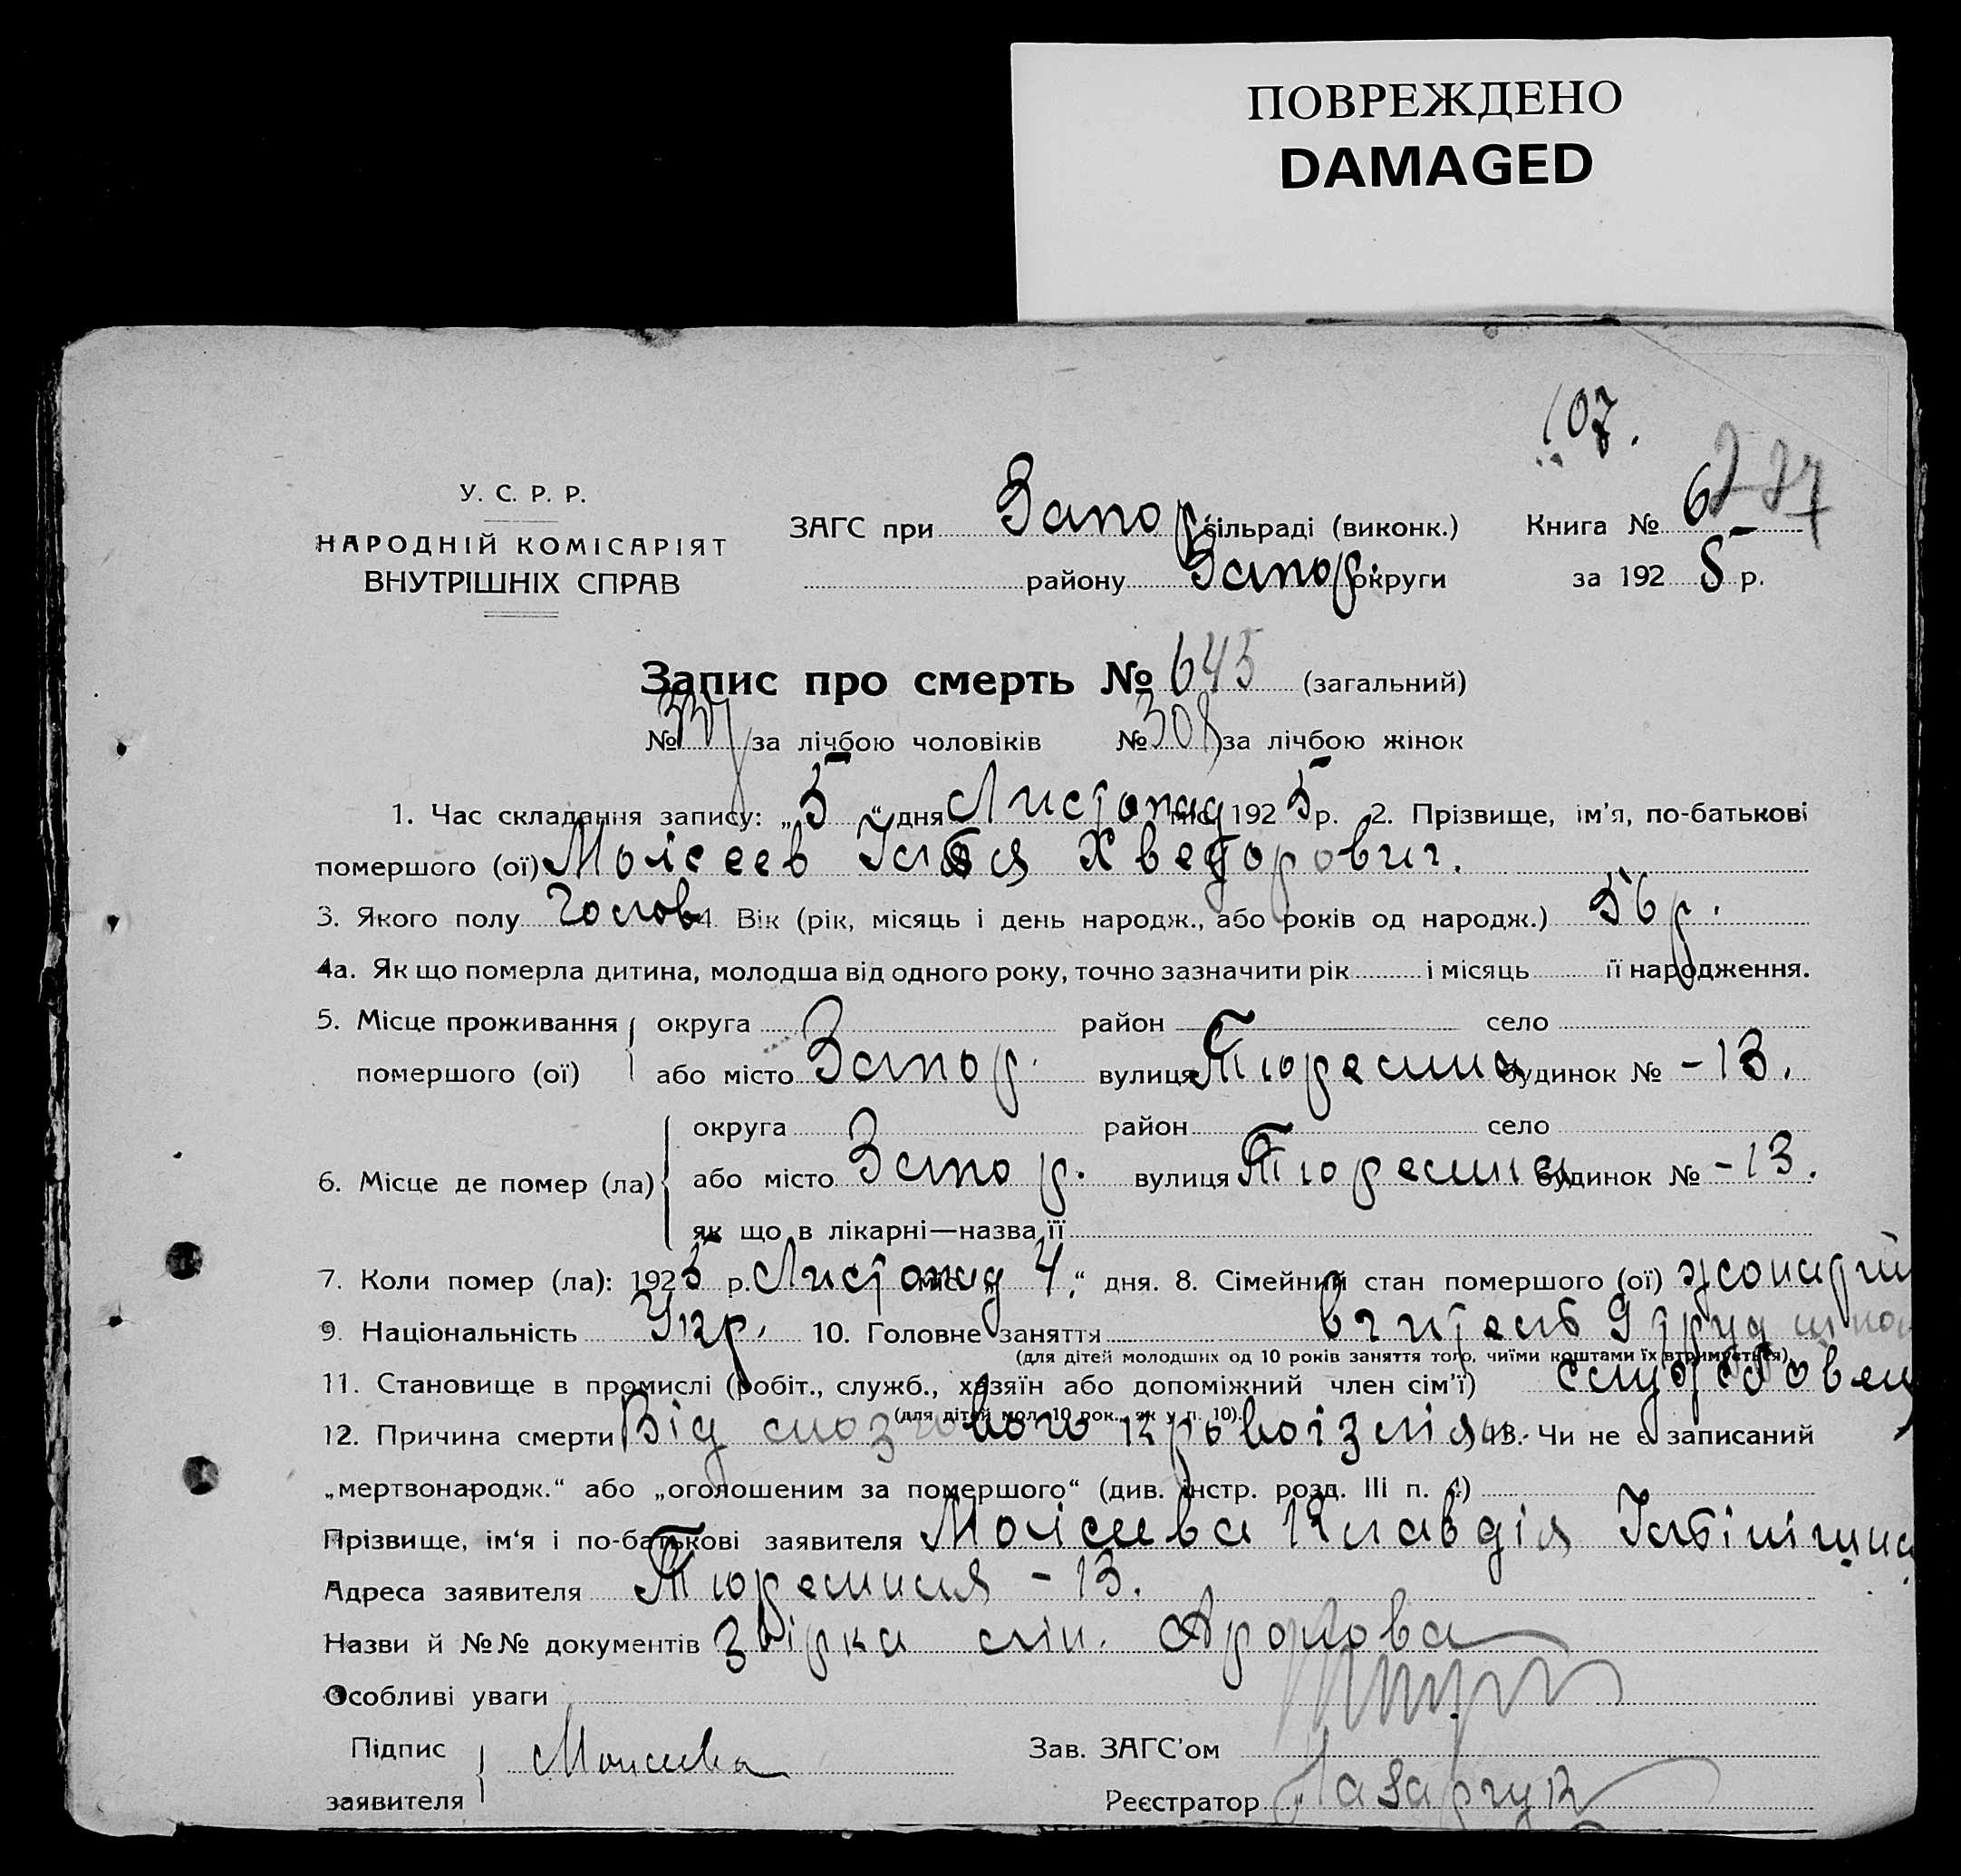 ПОВРЕЖДЕНО
DAMAGED
107.
У. С. Р. Р.
НАРОДНІЙ КОМІСАРІЯТ
ВНУТРІШНІХ СПРАВ
ЗАГС при Запор. сільраді (виконк.) Книга № 6
району Запор. округи за 192 5 р.
Запис про смерть № 645 (загальний)
№ 337 за лічбою чоловіків № 308 за лічбою жінок
1. Час складання запису: „ 5 “ дня Листопад міс. 192 5 р. 2. Прізвище, ім'я, по-батькові
помершого (ої) Моісеев Ілья Хведорович.
3. Якого полу Чолов 4. Вік (рік, місяць і день народж., або років од народж.) 56 р.
4а. Як що померла дитина, молодша від одного року, точно зазначити рік і місяць її народження.
5. Місце проживання округа район село
помершого (ої) або місто Запор. вулиця Тюремна будинок № - 13.
округа район село
6. Місце де помер (ла) або місто Запор. вулиця Тюремна будинок № - 13.
як що в лікарні—назва її
7. Коли помер (ла): 192 5 р. Листопад міс. „ 4 “ дня. 8. Сімейний стан помершого (ої) жонатий
9. Національність Укр. 10. Головне заняття вчитель труд
(для дітей молодших од 10 років заняття того, чиїми коштами їх втримується).
11. Становище в промислі (робіт., служб., хазяїн або допоміжний член сім'ї) службовец
(для дітей мол. 10 рок., як у п. 10).
12. Причина смерти Від мозгового 13. Чи не є записаний
„мертвонародж.“ або „оголошеним за помершого“ (див. інстр. розд. III п. 4)
Прізвище, ім'я і по-батькові заявителя Моісеева Клавдія Ільінішна
Адреса заявителя Тюремная - 13.
Назви й №№ документів Аронова
Особливі уваги
Підпис Моисеева Зав. ЗАГС'ом
заявителя Реєстратор Лазарчук